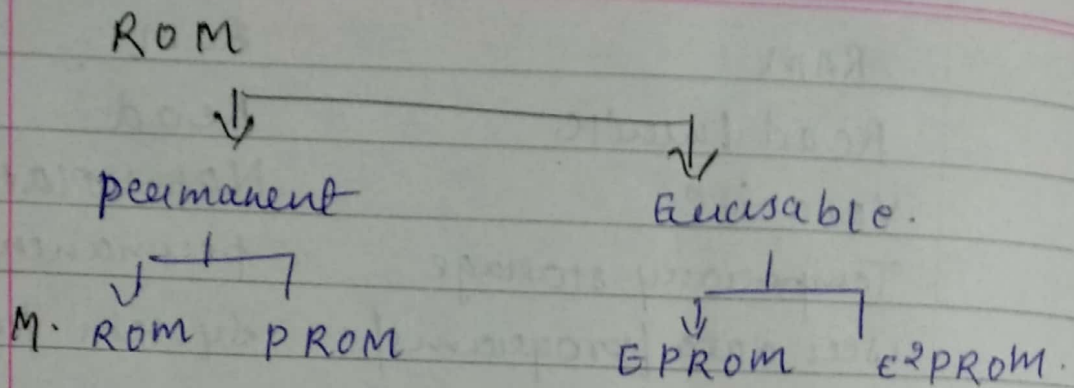 ROM
permanent Erasable.
M. ROM PROM EPROM E²PROM.